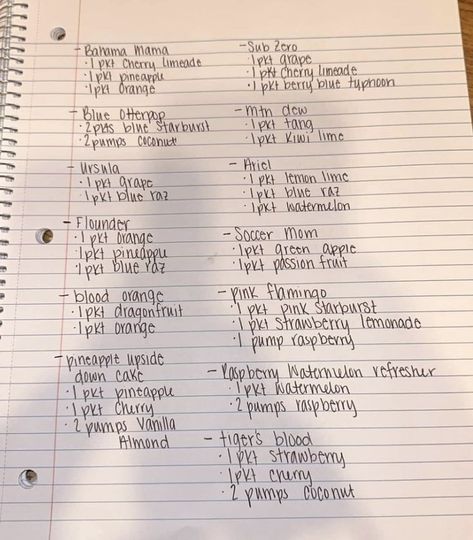 - Bahama Mama
· 1 pkt cherry limeade
· 1 pkt pineapple
· 1 pkt orange
- Blue Otterpop
· 2 pkts blue starburst
· 2 pumps coconut
- Ursula
· 1 pkt grape
· 1 pkt blue raz
- Flounder
· 1 pkt orange
· 1 pkt pineapple
· 1 pkt blue raz
- blood orange
· 1 pkt dragonfruit
· 1 pkt orange
- pineapple upside
down cake
· 1 pkt pineapple
· 1 pkt cherry
· 2 pumps Vanilla
Almond
- Sub Zero
· 1 pkt grape
· 1 pkt cherry limeade
· 1 pkt berry blue typhoon
- mtn dew
· 1 pkt tang
· 1 pkt kiwi lime
- Ariel
· 1 pkt lemon lime
· 1 pkt blue raz
· 1 pkt watermelon
- Soccer Mom
· 1 pkt green apple
· 1 pkt passion fruit
- pink flamingo
· 1 pkt pink starburst
· 1 pkt strawberry lemonade
· 1 pump raspberry
- Raspberry Watermelon refresher
· 1 pkt watermelon
· 2 pumps raspberry
- tiger's blood
· 1 pkt strawberry
· 1 pkt cherry
· 2 pumps coconut